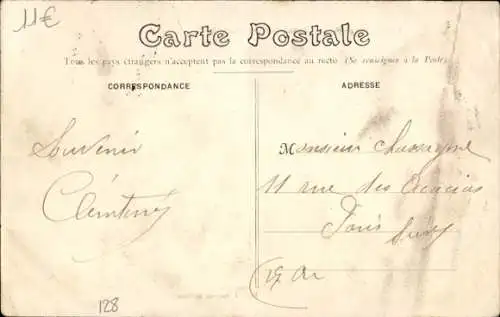 11€
Carte Postale
Tous les pays étrangers n'acceptent pas la correspondance au recto (Se renseigner à la Poste)
CORRESPONDANCE
ADRESSE
Souvenir
Monsieur
11 rue des Acacias
Paris
128